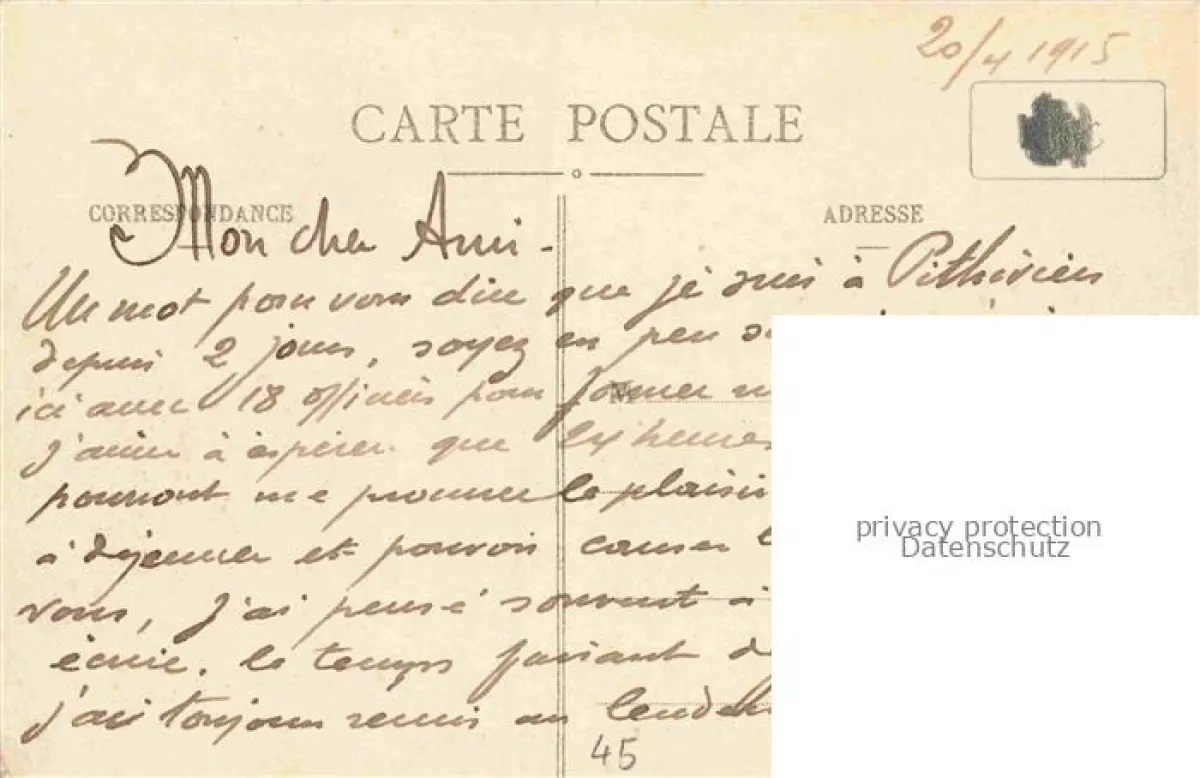 20/4 1915
CARTE POSTALE
CORRESPONDANCE
ADRESSE
Mon cher Ami -
Un mot pour vous dire que je suis à Pithiviers
depuis 2 jours, soyez en peu
ici avec 18 officiers pour former
J'aime à espérer que les heures
pourront me procurer le plaisir
à déjeuner et pouvoir causer
vous, J'ai pensé souvent à
écrire. le temps faisant
j'ai toujours remis au
45
privacy protection
Datenschutz